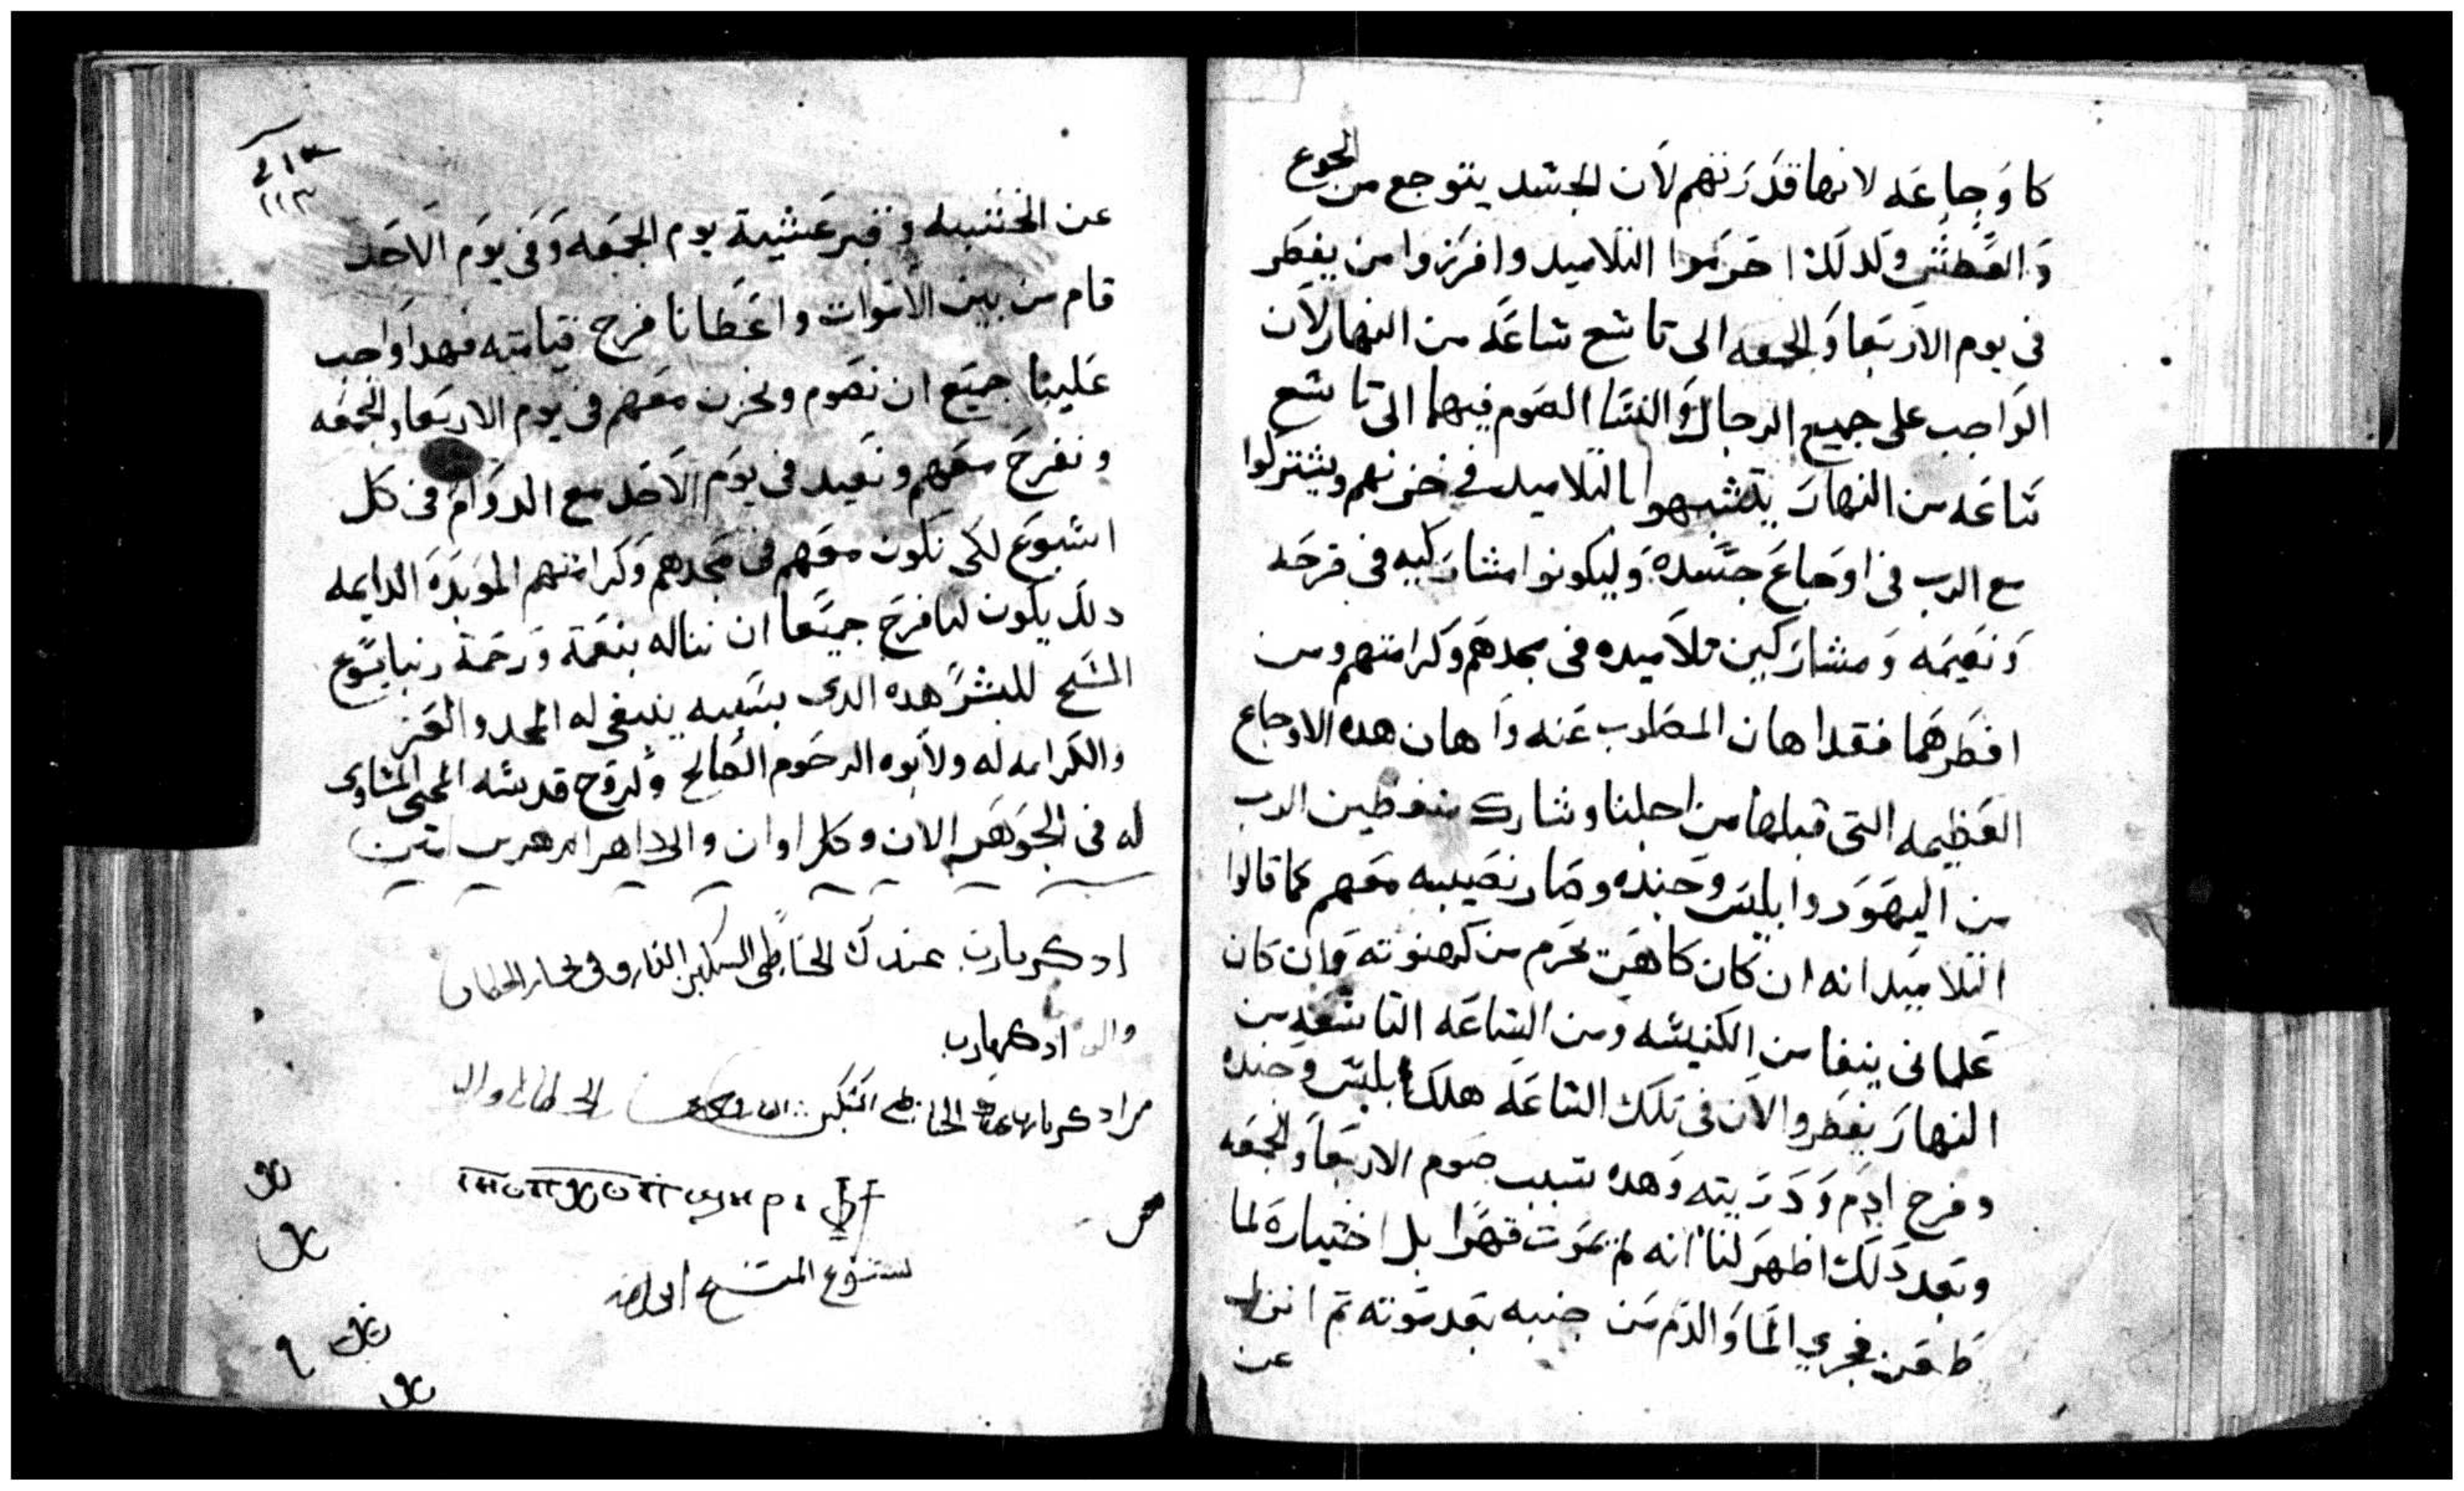 كاوجاعه لانها قدرتهم لان الجسد يتوجع من الجوع
والعطش ولدلك احرموا التلاميد وافرزوا من يفطر
فى يوم الاربعا والجمعه الى تاسع ساعه من النهار لان
الواجب على جميع الرجال والنسا الصوم فيهما الى تاسع
ساعه من النهار يتشبهوا بالتلاميد فى حزنهم ويشتركوا
مع الرب فى اوجاع جسده وليكونوا مشاركيه فى فرحه
ونعيمه ومشاركين تلاميده فى مجدهم وكرامتهم ومن
افطرهما فقد اهان المصلوب عنه واهان هده الاوجاع
العظيمه التى قبلها من اجلنا وشارك مبغضين الرب
من اليهود وابليس وجنده وصار نصيبه معهم كما قالوا
التلاميد انه ان كان كاهن يحرم من كهنوته وان كان
علمانى ينفا من الكنيسه ومن الساعه التاسعه من
النهار يفطروا لان فى تلك الساعه هلك ابليس وجنده
وفرح ادم ودريته وهده سبب صوم الاربعا والجمعه
وبعد دلك اظهر لنا انه لم يموت قهرا بل اختياره لما
طعن فجري الما والدم من جنبه بعد موته تم انزل
عن
١١٣
عن الخشبه وقبر عشية يوم الجمعه وفى يوم الاحد
قام من بين الاموات واعطانا فرح قيامته فهدا واجب
علينا جميع ان نصوم ونحزن معهم فى يوم الاربعا والجمعه
ونفرح معهم ونعيد فى يوم الاحد مع الدوام فى كل
اسبوع لكى نكون معهم فى مجدهم وكرامتهم الموبده الدايمه
دلك يكون لنا فرح جميعا ان نناله بنعمة ورحمة ربنا يسوع
المسيح للبشر هده الدى بسببه ينبغى له المجد والعز
والكرامه له ولابوه الرحوم الصالح ولروح قدسه المحى المساوى
له فى الجوهر الان وكل اوان والى داهر الدهرين امين
ادكر يارب عبدك الخاطى المسكين الغارق فى بحار الخطايا
ادكر يارب
ادكر يارب عبدك الخاطى المسكين
يسوع المسيح